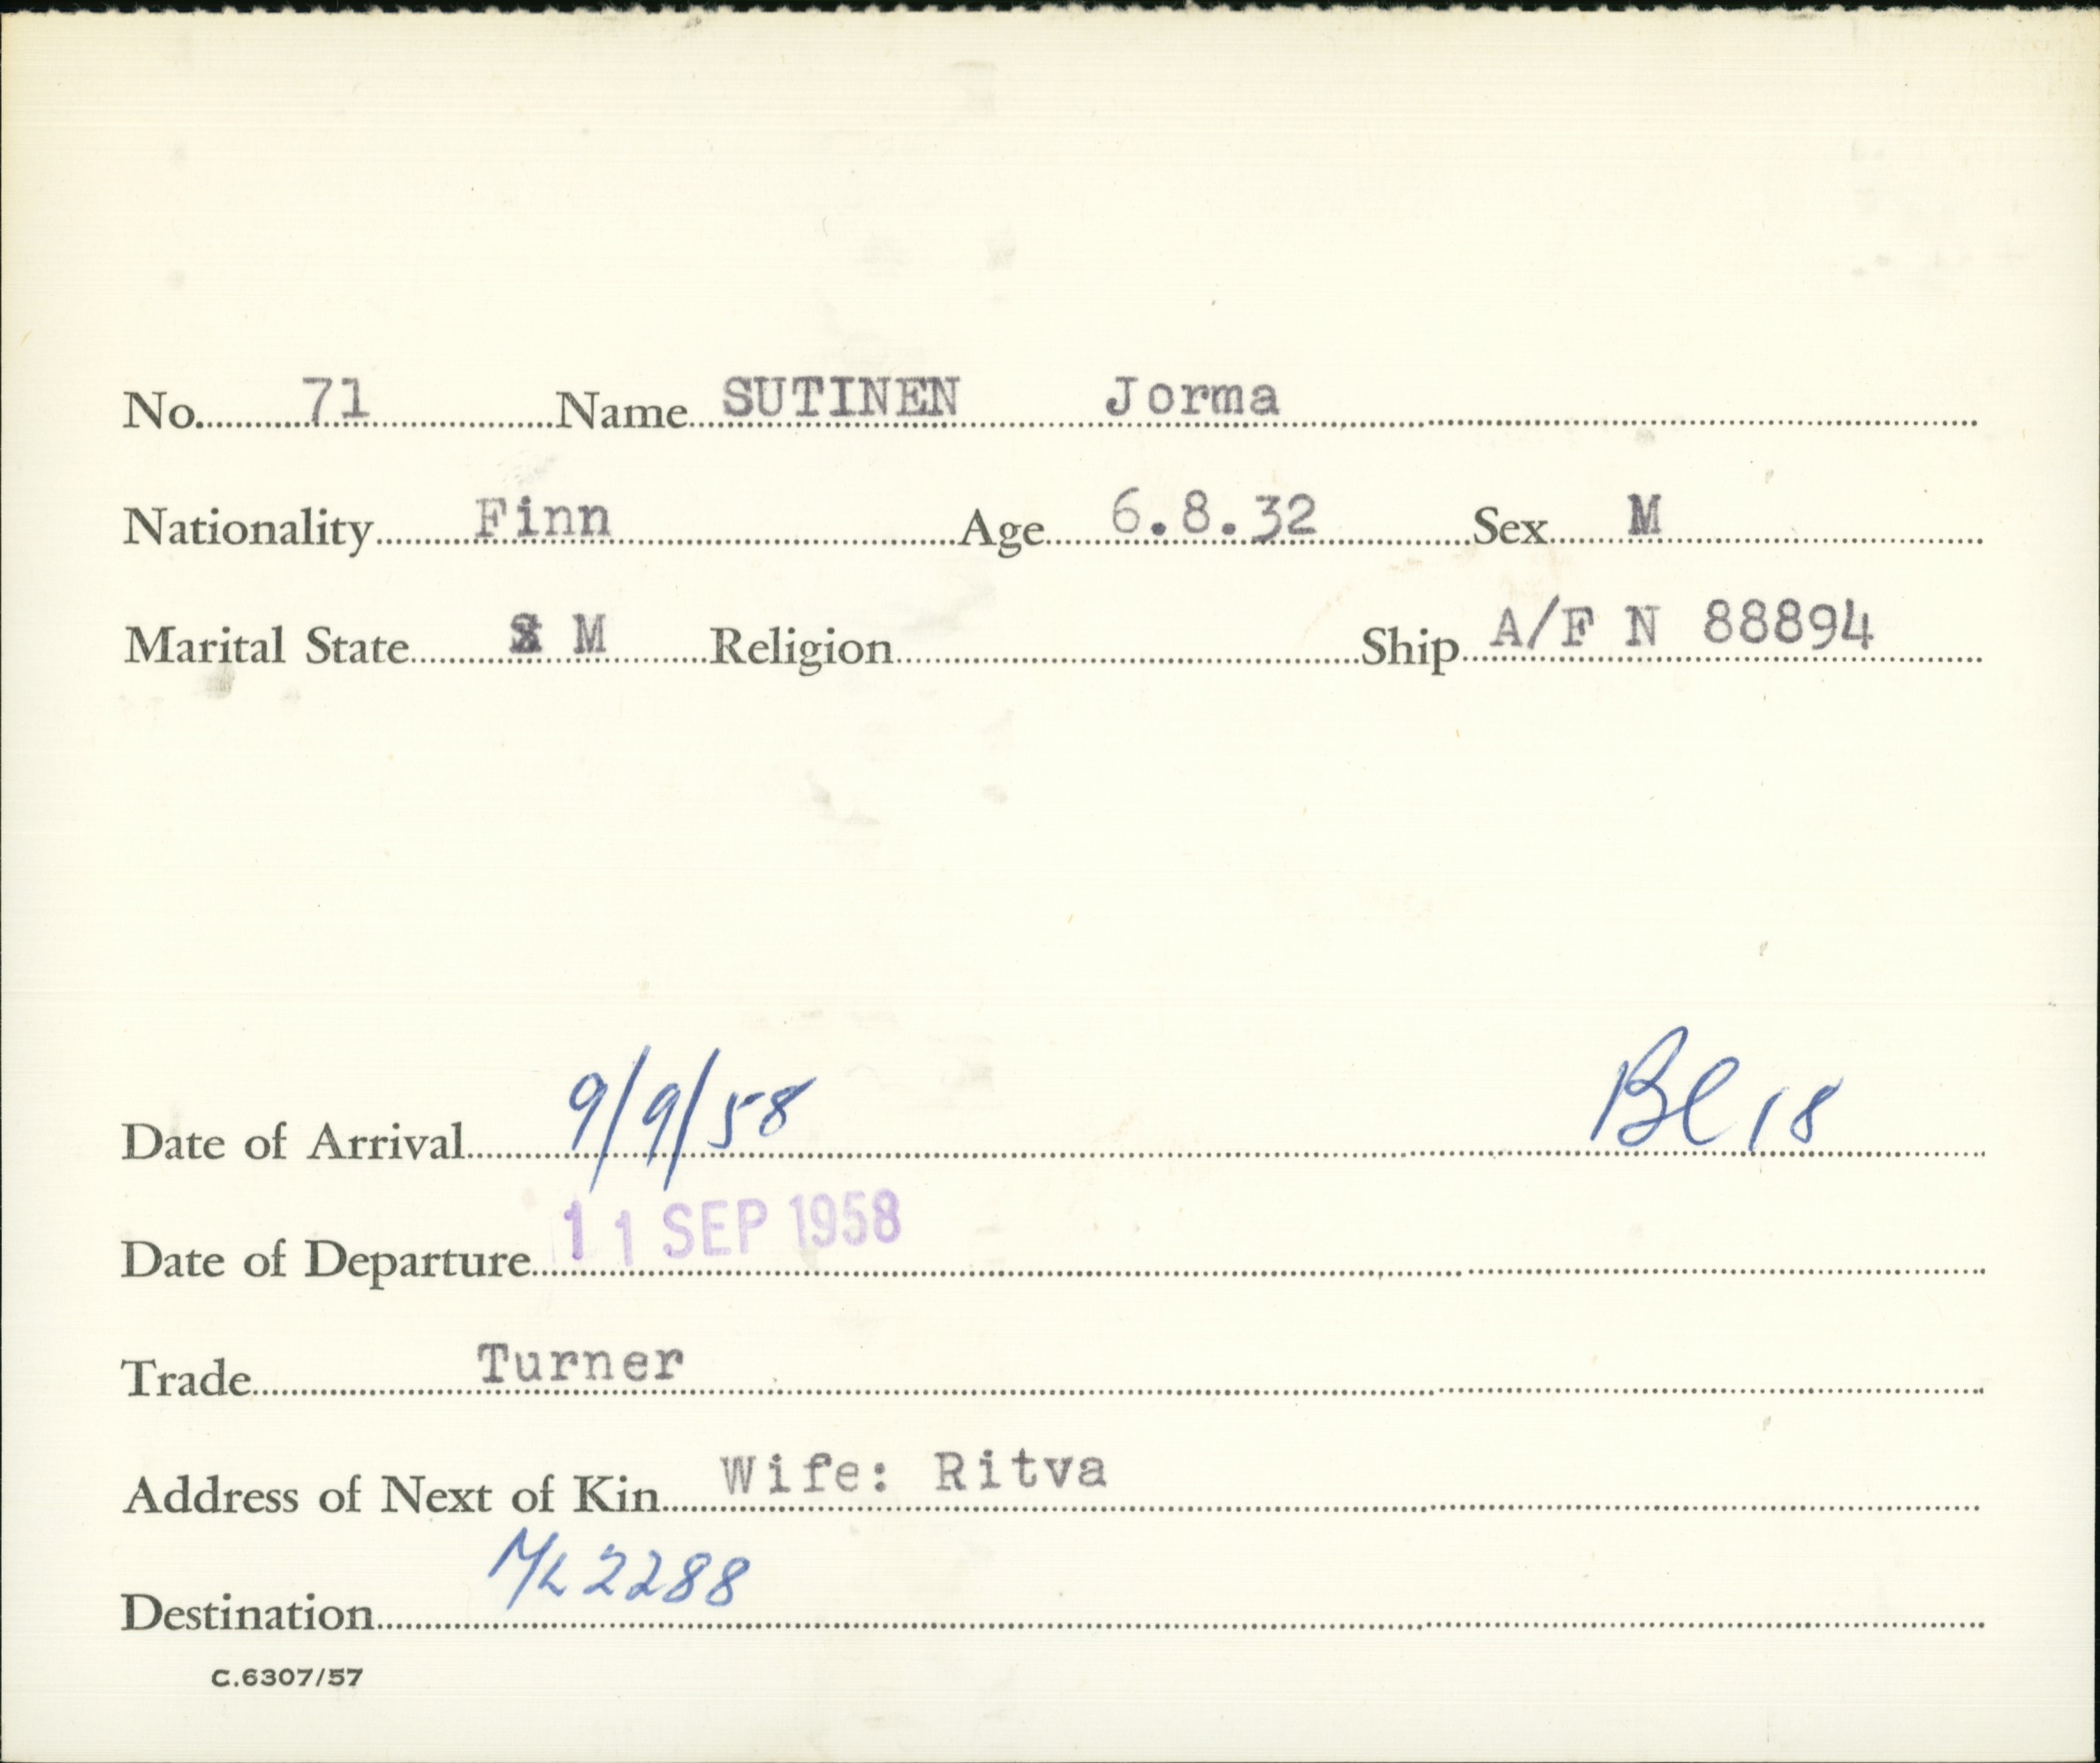 No. 71 Name SUTINEN Jorma
Nationality Finn Age 6.8.32 Sex M
Marital State M Religion Ship A/F N 88894
Date of Arrival 9/9/58 Bl 18
Date of Departure 11 SEP 1958
Trade Turner
Address of Next of Kin Wife: Ritva
Destination ML 2288
C.6307/57